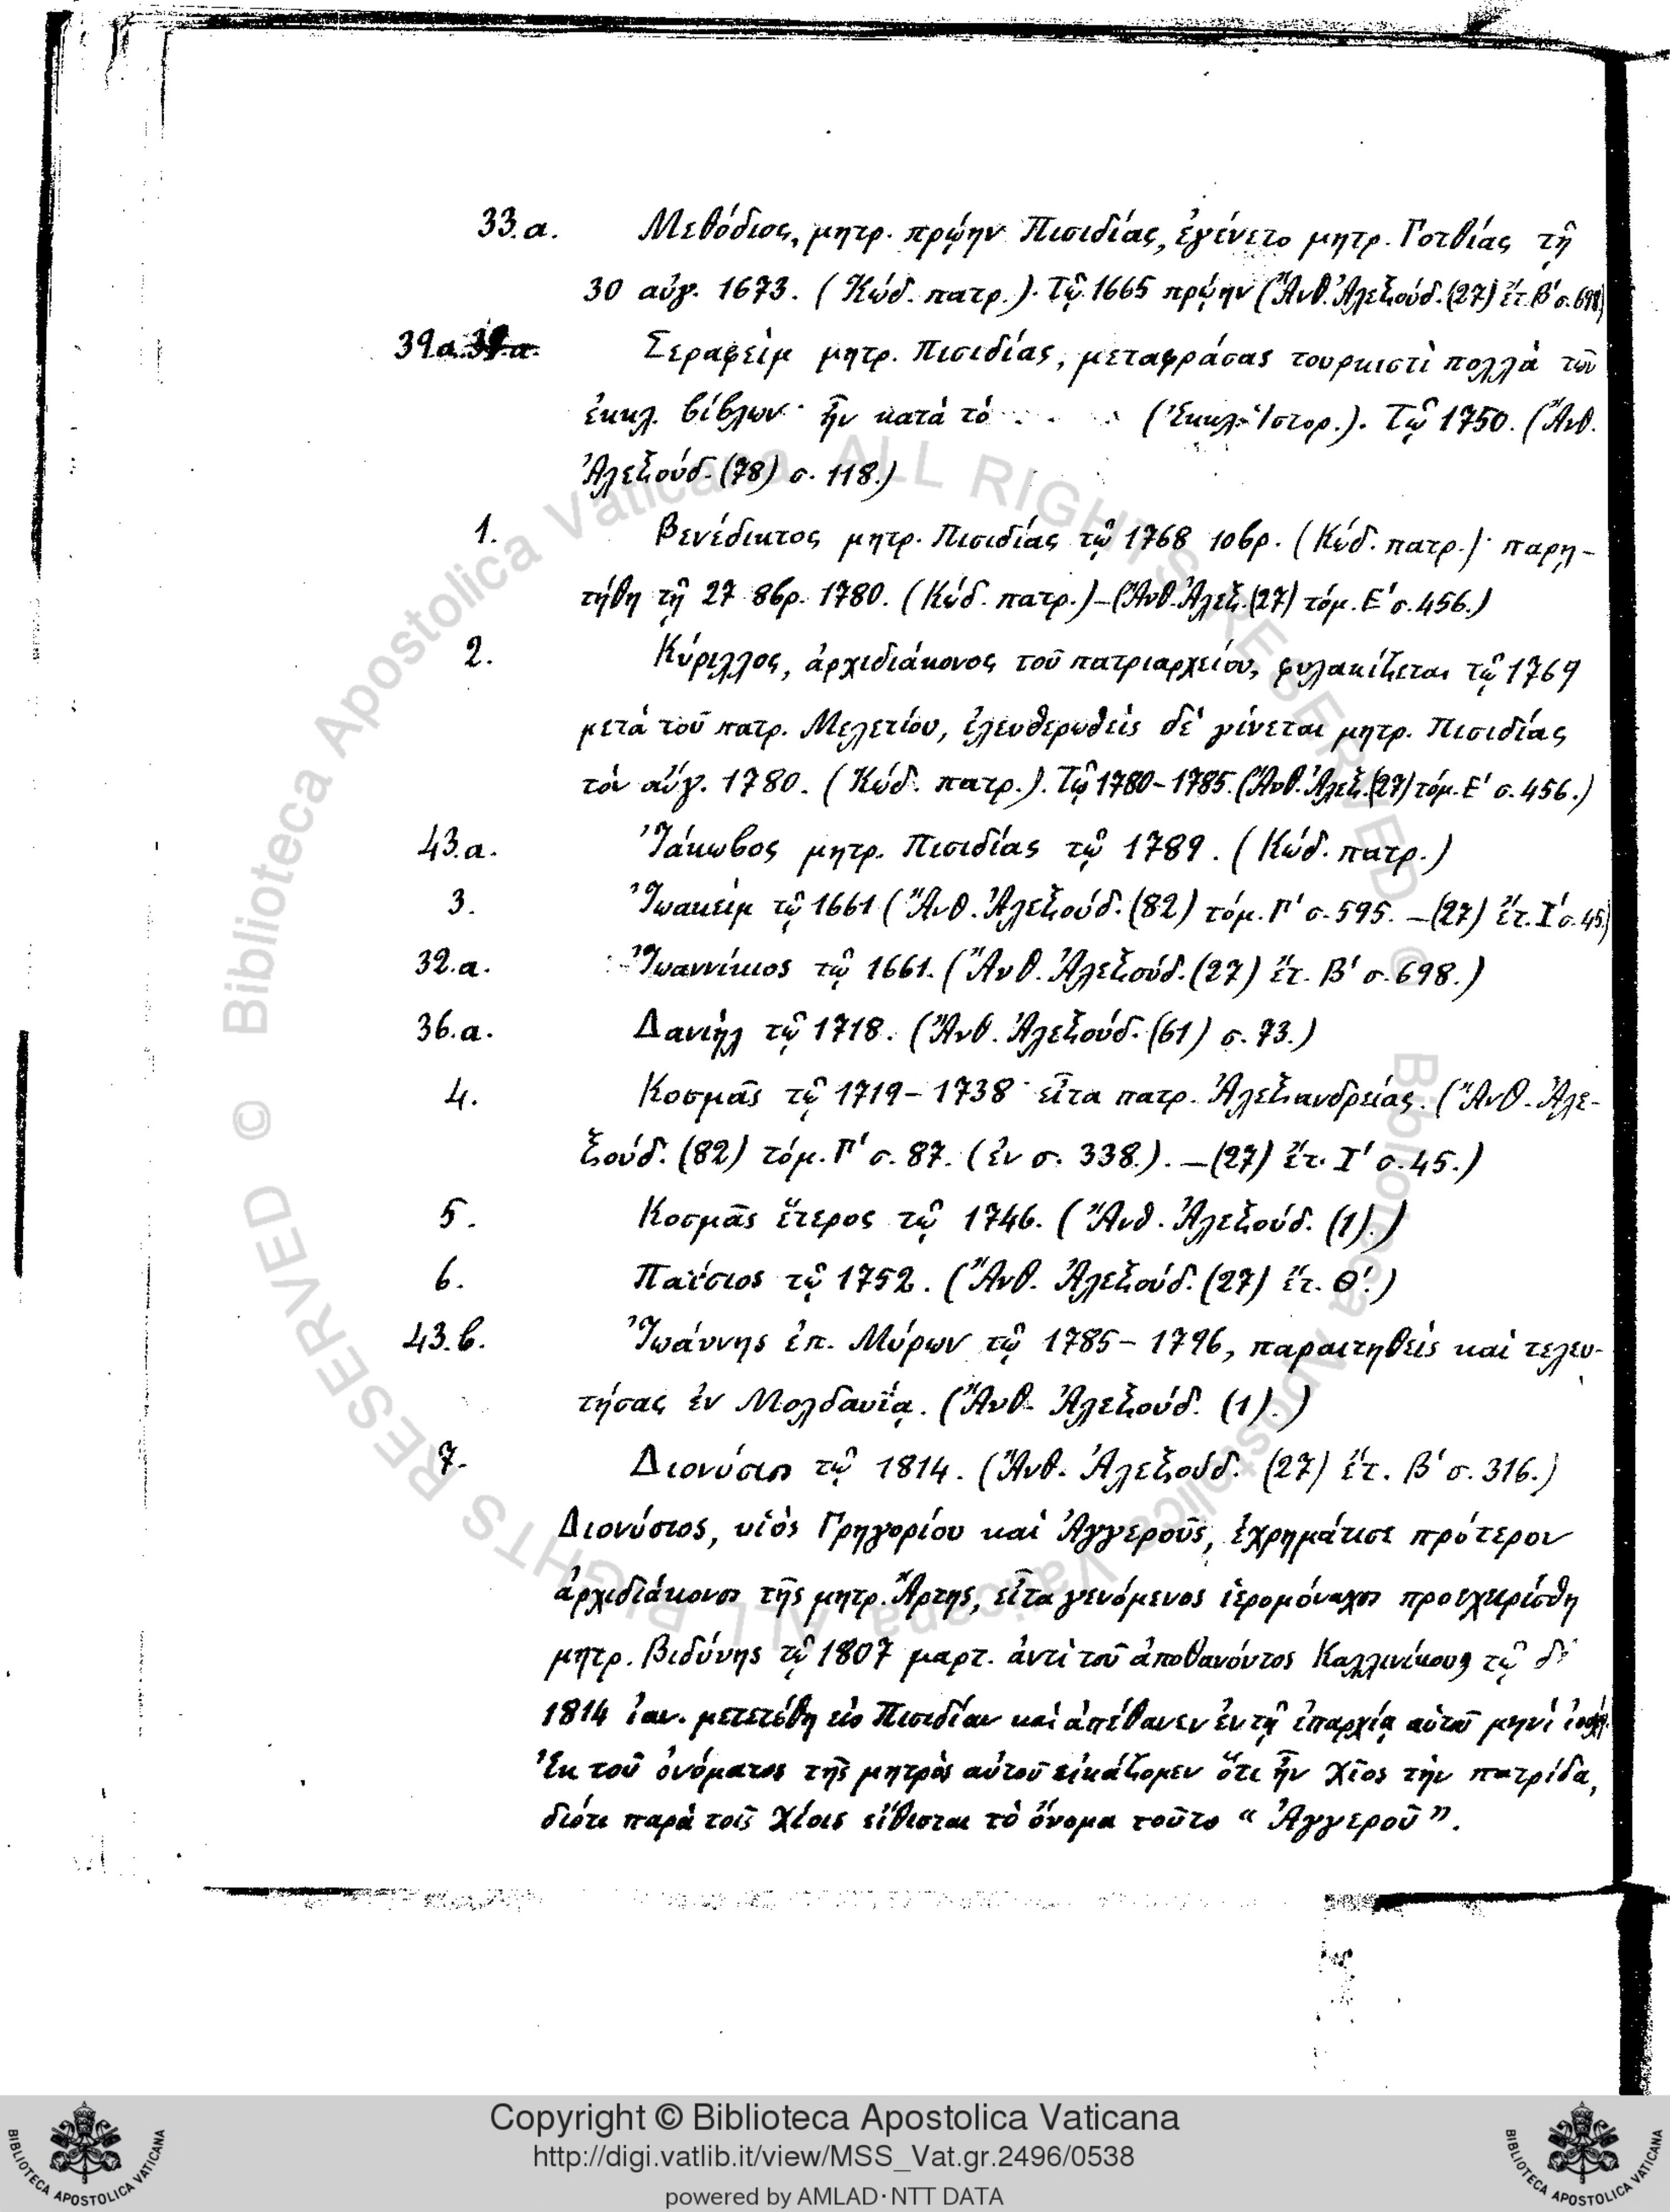 33.α. Μεθόδιος, μητρ. πρῴην Πισιδίας, ἐγένετο μητρ. Γοτθίας τῇ
30 αὐγ. 1673. (Κώδ. πατρ.). Τῷ 1665 πρῴην (Ἀνθ. Ἀλεξούδ. (27) ἔτ. Β' σ. 698)
39.α. Σεραφεὶμ μητρ. Πισιδίας, μεταφράσας τουρκιστὶ πολλὰ τῶν
ἐκκλ. βίβλων· ἦν κατὰ τὸ . . . . (Ἐκκλ. Ἱστορ.). Τῷ 1750. (Ἄνθ.
Ἀλεξούδ. (78) σ. 118.)
1. Βενέδικτος μητρ. Πισιδίας τῷ 1768 10βρ. (Κώδ. πατρ.)· παρῃ-
τήθη τῇ 27 8βρ. 1780. (Κώδ. πατρ.) – (Ἄνθ. Ἀλεξ. (27) τόμ. Ε' σ. 456.)
2. Κύριλλος, ἀρχιδιάκονος τοῦ πατριαρχείου, φυλακίζεται τῷ 1769
μετὰ τοῦ πατρ. Μελετίου, ἐλευθερωθεὶς δὲ γίνεται μητρ. Πισιδίας
τὸν αὔγ. 1780. (Κώδ. πατρ.). Τῷ 1780-1785. (Ἄνθ. Ἀλεξ. (27) τόμ. Ε' σ. 456.)
43.α. Ἰάκωβος μητρ. Πισιδίας τῷ 1789. (Κώδ. πατρ.)
3. Ἰωακεὶμ τῷ 1661 (Ἄνθ. Ἀλεξούδ. (82) τόμ. Γ' σ. 595. – (27) ἔτ. Ι' σ. 45)
32.α. Ἰωαννίκιος τῷ 1661. (Ἄνθ. Ἀλεξούδ. (27) ἔτ. Β' σ. 698.)
36.α. Δανιὴλ τῷ 1718. (Ἄνθ. Ἀλεξούδ. (61) σ. 73.)
4. Κοσμᾶς τῷ 1719-1738· εἶτα πατρ. Ἀλεξανδρείας. (Ἄνθ. Ἀλε-
ξούδ. (82) τόμ. Γ' σ. 87. (ἐν σ. 338.). – (27) ἔτ. Ι' σ. 45.)
5. Κοσμᾶς ἕτερος τῷ 1746. (Ἄνθ. Ἀλεξούδ. (1).)
6. Παΐσιος τῷ 1752. (Ἄνθ. Ἀλεξούδ. (27) ἔτ. Θ'.)
43.β. Ἰωάννης ἐπ. Μύρων τῷ 1785-1796, παραιτηθεὶς καὶ τελευ-
τήσας ἐν Μολδαυΐᾳ. (Ἄνθ. Ἀλεξούδ. (1).)
7. Διονύσιος τῷ 1814. (Ἄνθ. Ἀλεξούδ. (27) ἔτ. Β' σ. 316.)
Διονύσιος, υἱὸς Γρηγορίου καὶ Ἀγγεροῦς, ἐχρημάτισε πρότερον
ἀρχιδιάκονος τῆς μητρ. Ἄρτης, εἶτα γενόμενος ἱερομόναχος προεχειρίσθη
μητρ. Βιδύνης τῷ 1807 μαρτ. ἀντὶ τοῦ ἀποθανόντος Καλλινίκου, τῷ δὲ
1814 ἰαν. μετετέθη εἰς Πισιδίαν καὶ ἀπέθανεν ἐν τῇ ἐπαρχίᾳ αὐτοῦ μηνὶ
Ἐκ τοῦ ὀνόματος τῆς μητρὸς αὐτοῦ εἰκάζομεν ὅτι ἦν Χῖος τὴν πατρίδα,
διότι παρὰ τοῖς Χίοις εἴθισται τὸ ὄνομα τοῦτο "Ἀγγεροῦ".
© Biblioteca Apostolica Vaticana ALL RIGHTS RESERVED
© Biblioteca Apostolica Vaticana ALL RIGHTS RESERVED
Copyright © Biblioteca Apostolica Vaticana
http://digi.vatlib.it/view/MSS_Vat.gr.2496/0538
powered by AMLAD·NTT DATA
BIBLIOTECA APOSTOLICA VATICANA
BIBLIOTECA APOSTOLICA VATICANA